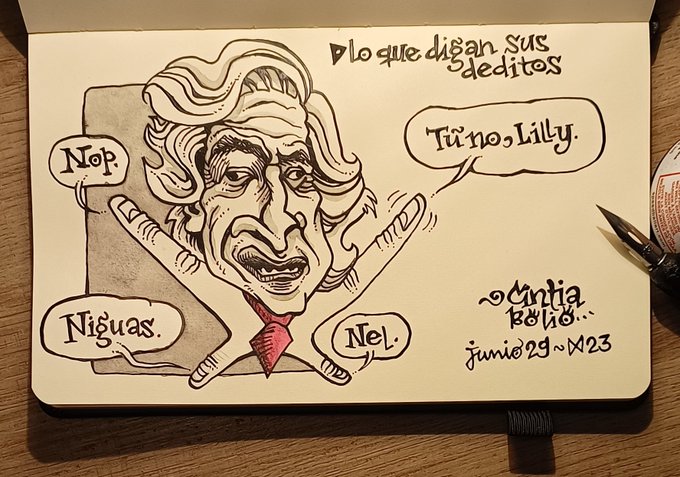 lo que digan sus
deditos
Nop.
Tú no, Lilly.
Niguas.
Nel.
Cintia
Bolio...
junio 29~23